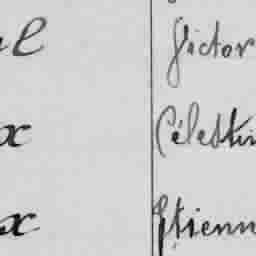 l Victor
x Célestin
x Etienn